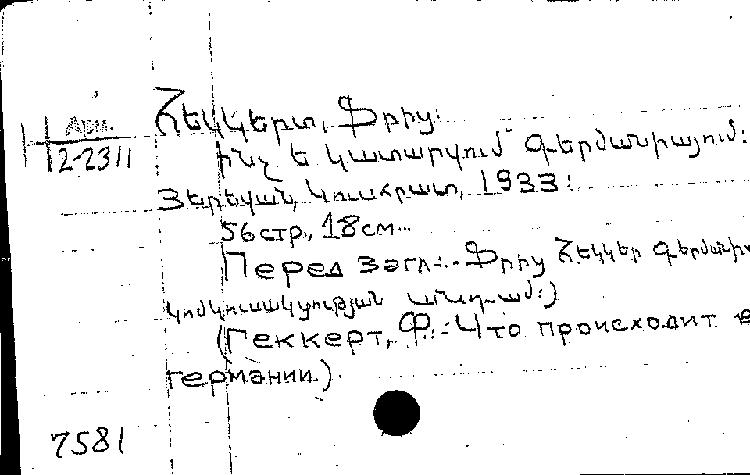 Հեկկերտ, Ֆրից.
Арм.
2-2311
ինչ ե կատարվում Գերմանիայում:
Յերեվան, Կուսհրատ, 1933:
56стр., 18см...
Перед загл.:.-Ֆրից Հեկկեր գերմանիա
կոմկուսակցության անդամ:)
(Геккерт, Ф.:-Что происходит в
германии.)
7581